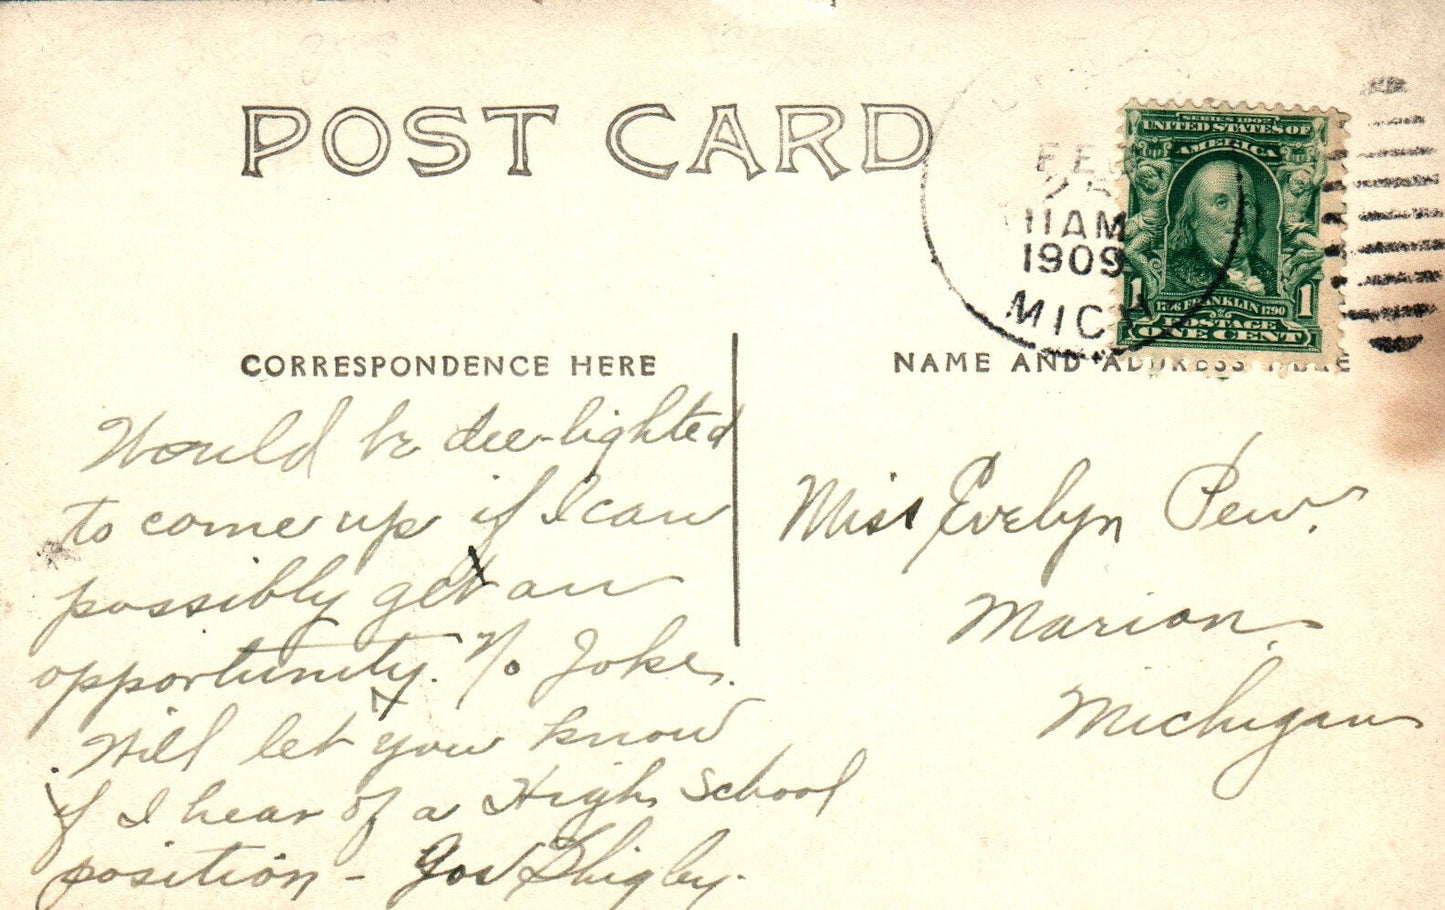 POST CARD
FEB
11 AM
1909
MICH
SERIES 1902
UNITED STATES OF
AMERICA
1 1
1706 FRANKLIN 1790
POSTAGE
ONE CENT
CORRESPONDENCE HERE
NAME AND ADDRESS HERE
Would be dee-lighted
to come up if I can
possibly get an
opportunity. No Joke.
Will let you know
if I hear of a High School
position - Jos Shigley.
Miss Evelyn Pew.
Marion,
Michigan